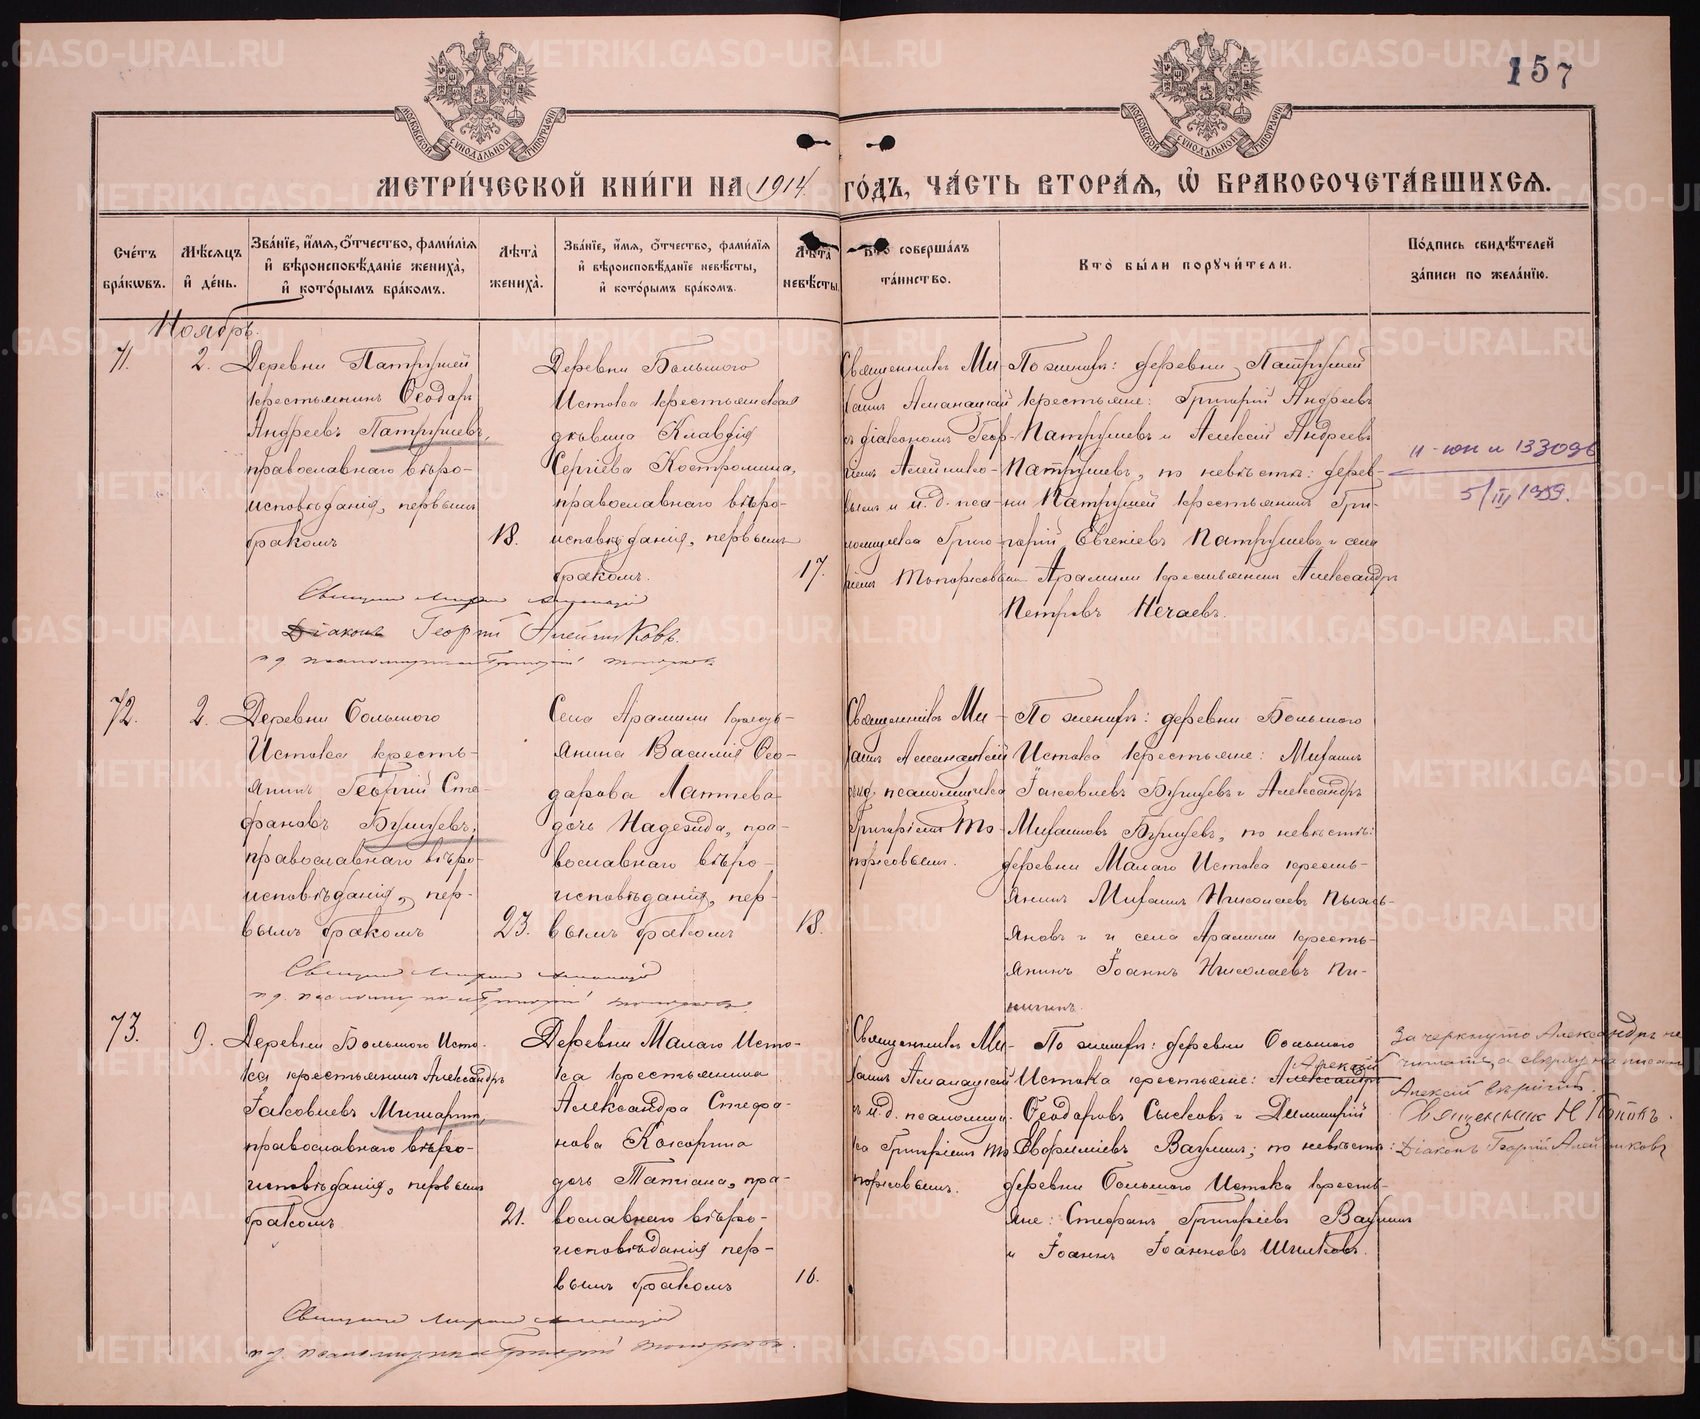 157
МЕТРИ́ЧЕСКОЙ КНИ́ГИ НА 1914 ГО́ДЪ, ЧА́СТЬ ВТОРА́Я, Ѡ БРАКОСОЧЕТА́ВШИХСЯ.
МОСКОВСКОЙ СѴНОДАЛЬНОЙ ТИПОГРАФІИ
МОСКОВСКОЙ СѴНОДАЛЬНОЙ ТИПОГРАФІИ
Сче́тъ бра́кѡвъ.
Мѣ́сяцъ и҆ де́нь.
Зва́нїе, и҆́мя, ѻ҆́тчество, фами́лїя и҆ вѣроисповѣ́данїе жениха̀, и҆ кото́рымъ бра́комъ.
Лѣ́та̀ жениха̀.
Зва́нїе, и҆́мя, ѻ҆́тчество, фами́лїя и҆ вѣроисповѣ́данїе невѣ́сты, и҆ кото́рымъ бра́комъ.
Лѣ́та̀ невѣ́сты.
Кто̀ соверша́лъ та́инство.
Кто̀ бы́ли порꙋчи́тели.
По́дпись свидѣ́телей за́писи по жела́нїю.
Ноябрь.
71.
2.
Деревни Патрушей
крестьянинъ Ѳеодоръ
Андреевъ Патрушевъ,
православнаго вѣро-
исповѣданія, первымъ
бракомъ
18.
Деревни Большого
Истока крестьянская
дѣвица Клавдія
Сергіева Костромина,
православнаго вѣро-
исповѣданія, первымъ
бракомъ.
17.
Священникъ Ми-
хаилъ
съ діакономъ Геор-
гіемъ Алейнико-
вымъ и и. д. пса-
ломщика Григо-
ріемъ Топорковымъ
По женихѣ: деревни Патрушей
крестьяне: Григорій Андреевъ
Патрушевъ и Алексій Андреевъ
Патрушевъ, по невѣстѣ: дерев-
ни Патрушей крестьянинъ Гри-
горій Евгеніевъ Патрушевъ и села
Арамили крестьянинъ Александръ
Петровъ Нечаевъ.
II-ЮН № 133096
5/III 1959.
Діаконъ Георгій Алейниковъ.
72.
2.
Деревни Большого
Истока кресть-
янинъ Георгій Сте-
фановъ Бушуевъ,
православнаго вѣро-
исповѣданія, пер-
вымъ бракомъ
23.
Села Арамили кресть-
янина Василія Ѳео-
дорова Лаптева
дочь Надежда, пра-
вославнаго вѣро-
исповѣданія, пер-
вымъ бракомъ
18.
Священникъ Ми-
хаилъ
съ и.д. псаломщика
Григоріемъ То-
порковымъ.
По женихѣ: деревни Большого
Истока крестьяне: Михаилъ
Іаковлевъ Бушуевъ и Александръ
Михаиловъ Бушуевъ, по невѣстѣ:
деревни Малаго Истока кресть-
янинъ Михаилъ Николаевъ Пьянь-
ковъ и села Арамили кресть-
янинъ Іоаннъ Николаевъ Пи-
нигинъ.
73.
9.
Деревни Большого Исто-
ка крестьянинъ Александръ
Іаковлевъ Мишаринъ,
православнаго вѣро-
исповѣданія, первымъ
бракомъ
21.
Деревни Малаго Исто-
ка крестьянина
Александра Стефа-
нова Кокорина
дочь Татіана, пра-
вославнаго вѣро-
исповѣданія пер-
вымъ бракомъ
16.
Священникъ Ми-
хаилъ
съ и.д. псаломщи-
ка Григоріемъ То-
порковымъ.
По женихѣ: деревни Большого
Алексій
Истока крестьяне: Александръ
Ѳеодоровъ Сысковъ и Димитрій
Евфиміевъ Ваулинъ; по невѣстѣ:
деревни Большого Истока кресть-
яне: Стефанъ Григоріевъ Ваулинъ
и Іоаннъ Іоанновъ Шишковъ.
Зачеркнуто Александръ не
читать, а сверху написанн.
Алексій вѣрить.
Священник Н. Поповъ.
Діаконъ Георгій Алейниковъ
METRIKI.GASO-URAL.RU